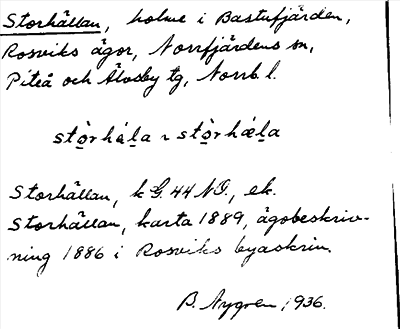 Storhällan, holme i Bastufjärden,
Rosviks ägor, Norrfjärdens sn,
Piteå och Älvsby tg, Norrb. l.
stò̱rhá̱ḻa ~ stò̱rhǽḻa
Storhällan, k G. 44 NO., ek.
Storhällan, karta 1889, ägobeskriv-
ning 1886 i Rosviks byaskrin.
B. Nygren, 1936.